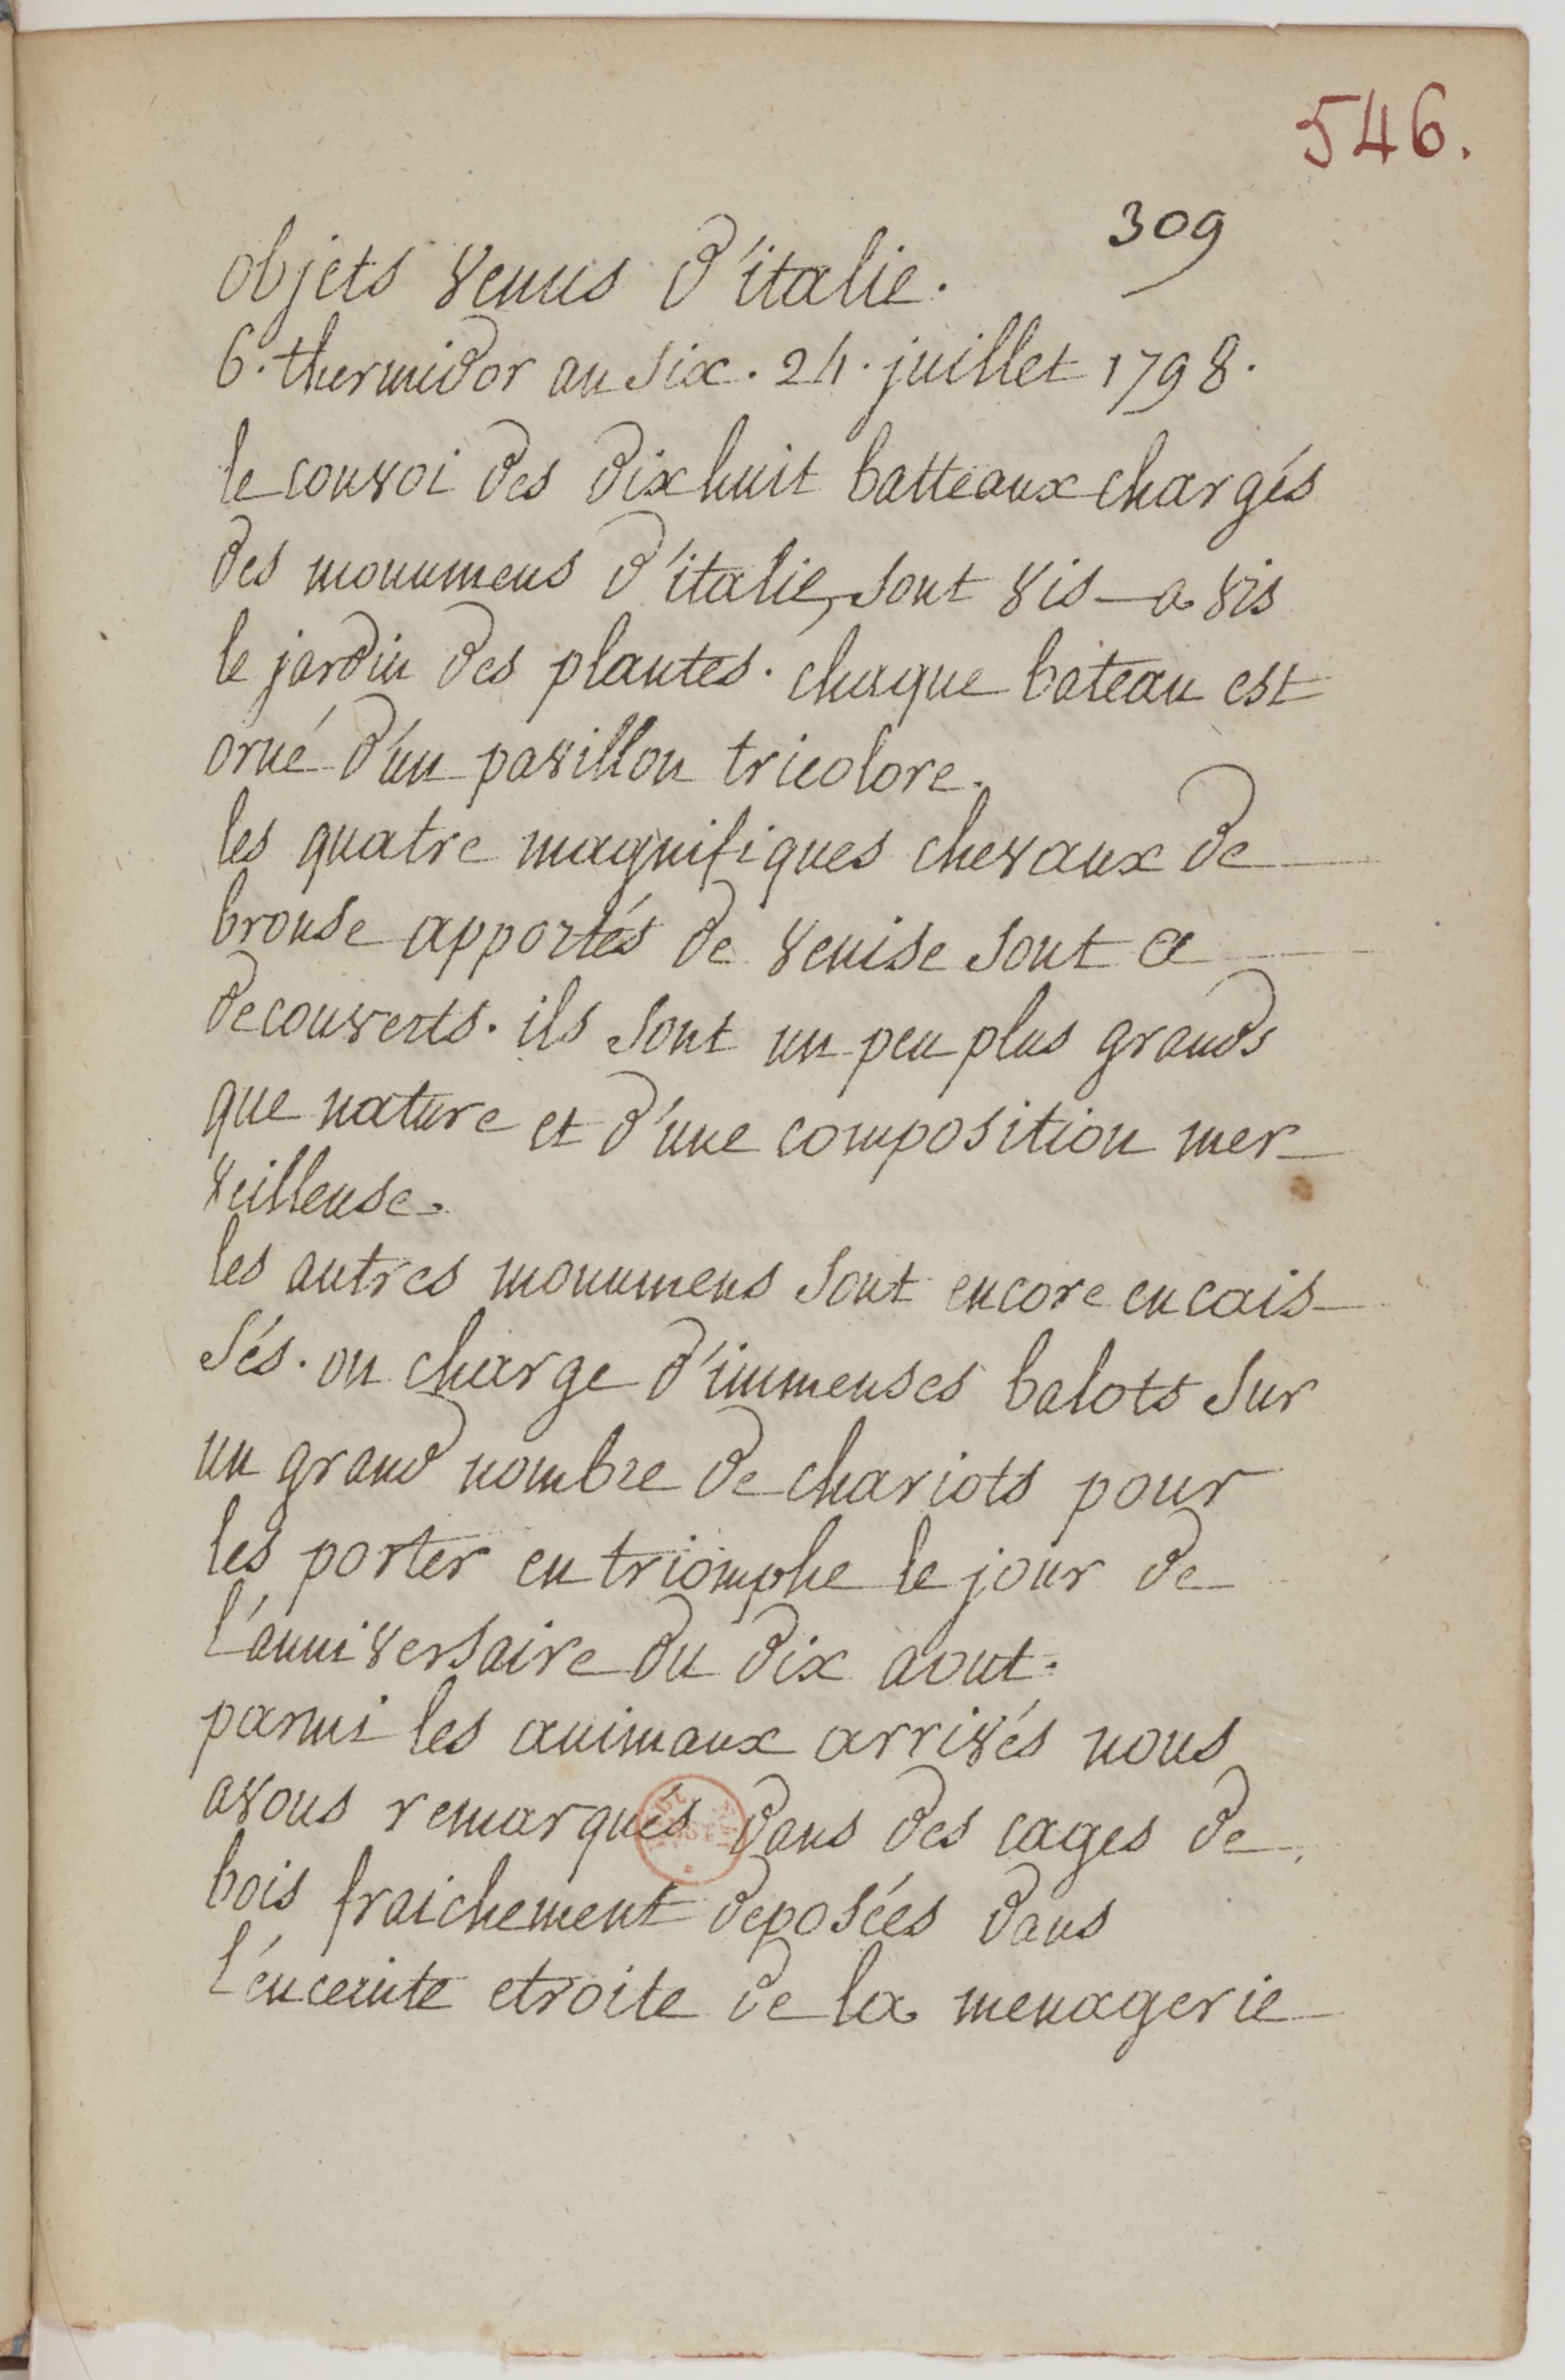 546.
309
objets venus d'italie.
6. thermidor an six. 24. juillet 1798.
le convoi des dix huit batteaux chargés
des monumens d'italie, sont vis-a vis
le jardin des plantes. chaque bateau est
orné d'un pavillon tricolore.
les quatre magnifiques chevaux de
bronse apportés de venise sont a
decouverts. ils sont un peu plus grands
que nature et d'une composition mer-
veilleuse.
les autres monumens sont encore encais-
sés. on charge d'immenses balots sur
un grand nombre de chariots pour
les porter en triomphe le jour de
l'anniversaire du dix aout.
parmi les animaux arrivés nous
avons remarqués dans des cages de
bois fraichement deposées dans
l'enceinte etroite de la menagerie